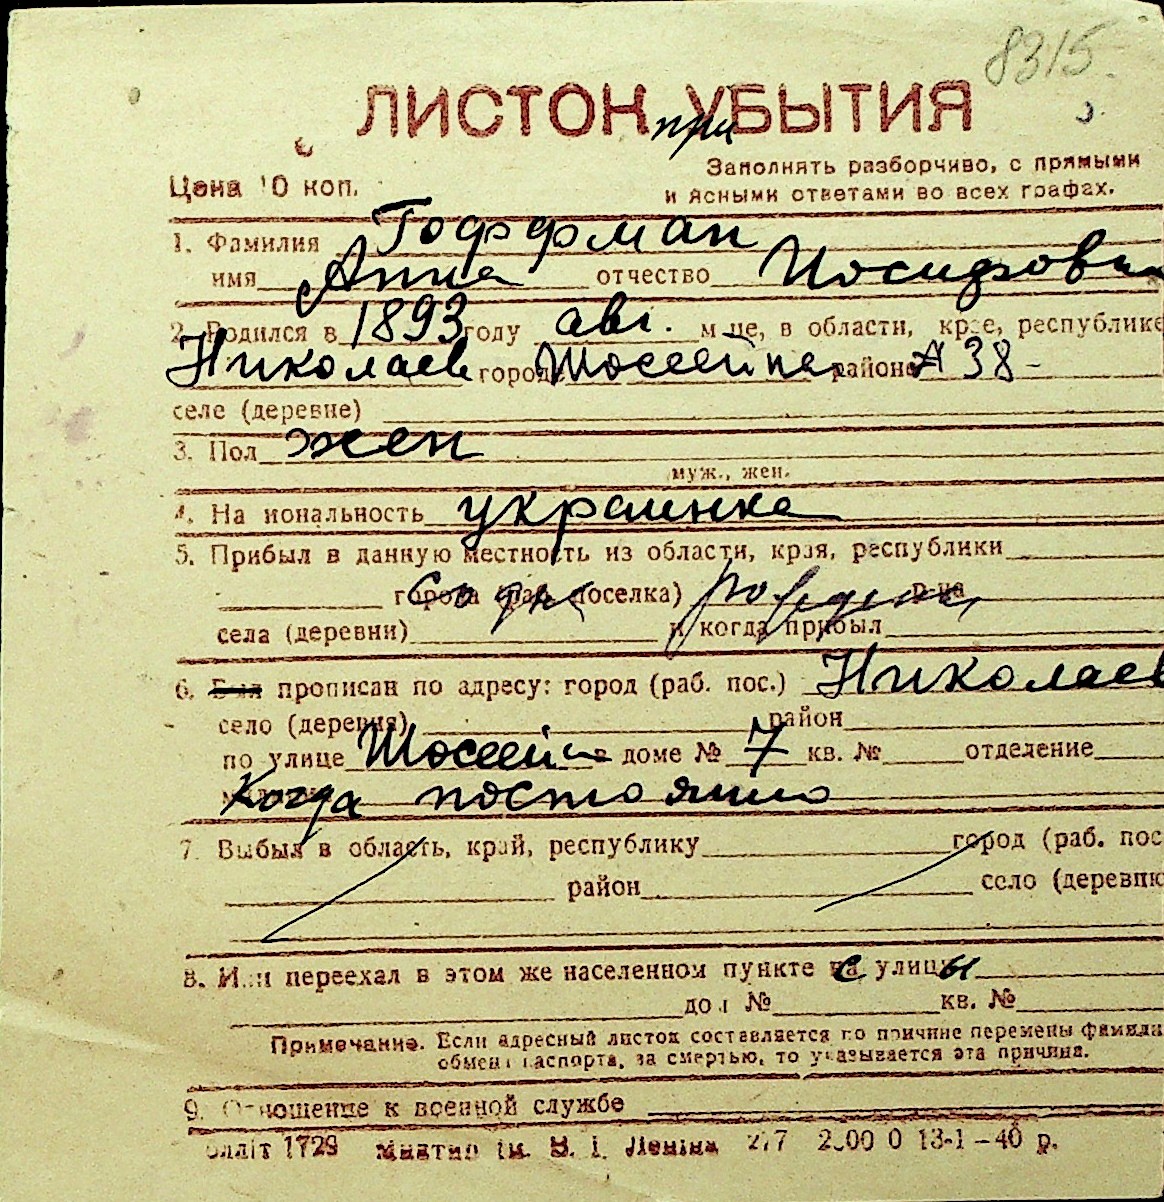 8315
ЛИСТОК при УБЫТИЯ
Заполнять разборчиво, с прямыми
Цена 10 коп. и ясными ответами во всех графах.
1. Фамилия Гоффман
имя Анна отчество Иосифовн
2. Родился в 1893 году авг. м-це, в области, крае, республике
Николаев городе Шоссейна районе 38-
селе (деревне)
3. Пол жен
муж., жен.
4. Национальность украинка
5. Прибыл в данную местность из области, края, республики
города (раб. поселка) р-на
села (деревни) и когда прибыл
6. Был прописан по адресу: город (раб. пос.) Николаев
село (деревня) район
по улице Шоссейн в доме № 7 кв. № отделение
Когда постоянно
7. Выбыл в область, край, республику город (раб. пос
район село (деревню
8. Или переехал в этом же населенном пункте с улицы
дом № кв. №
Примечание. Если адресный листок составляется по причине перемены фамили
обмен паспорта, за смертью, то указывается эта причина.
9. Отношение к военной службе
1729 ім. В. І. Леніна 13-1-40 р.